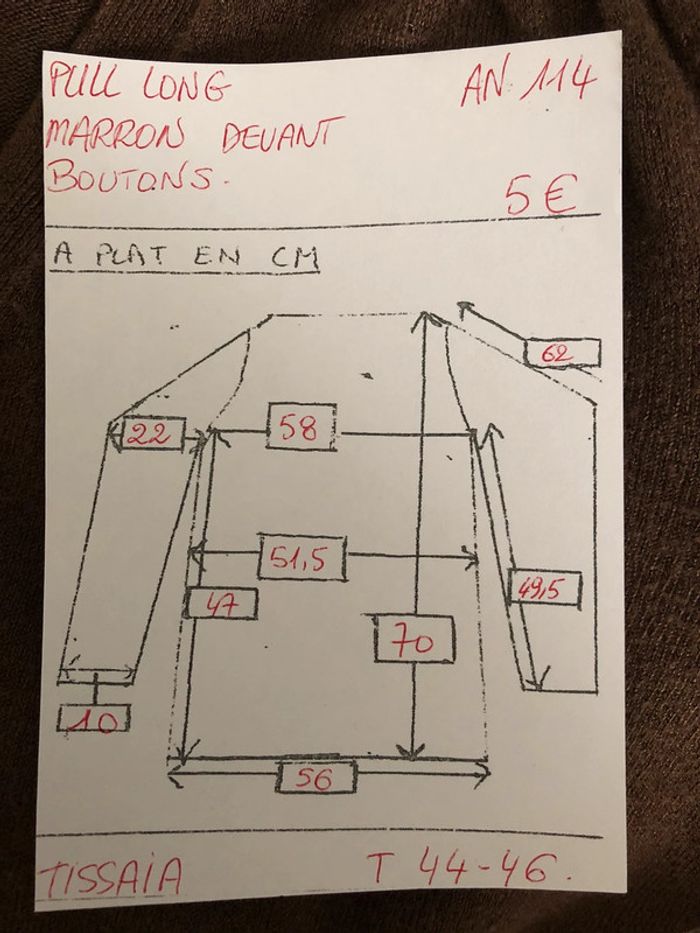 PULL LONG AN 114
MARRON DEVANT
BOUTONS.
5€
A PLAT EN CM
62
22
58
51,5
49,5
47
70
10
56
TISSAIA T 44-46.